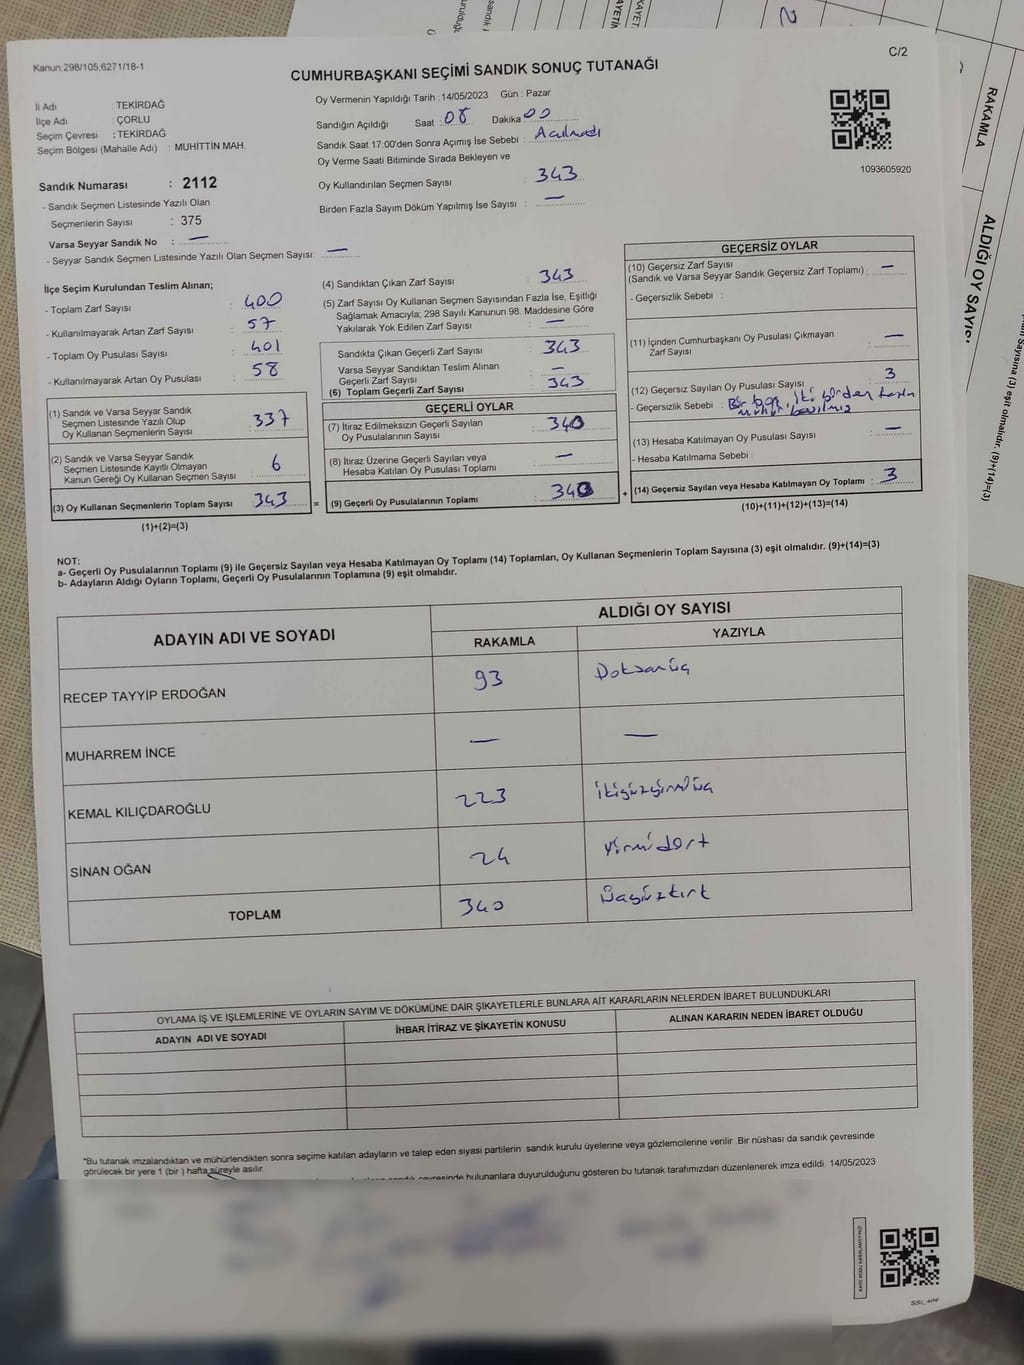 Kanun;298/105,6271/18-1
C/2
CUMHURBAŞKANI SEÇİMİ SANDIK SONUÇ TUTANAĞI
İl Adı : TEKİRDAĞ
İlçe Adı : ÇORLU
Seçim Çevresi : TEKİRDAĞ
Seçim Bölgesi (Mahalle Adı) : MUHİTTİN MAH.
Sandık Numarası : 2112
- Sandık Seçmen Listesinde Yazılı Olan
Seçmenlerin Sayısı : 375
Varsa Seyyar Sandık No : —
- Seyyar Sandık Seçmen Listesinde Yazılı Olan Seçmen Sayısı: —
Oy Vermenin Yapıldığı Tarih : 14/05/2023 Gün : Pazar
Sandığın Açıldığı Saat : 08 Dakika : 00
Sandık Saat 17:00'den Sonra Açımış İse Sebebi : Açılmadı
Oy Verme Saati Bitiminde Sırada Bekleyen ve
Oy Kullandırılan Seçmen Sayısı : 343
Birden Fazla Sayım Döküm Yapılmış İse Sayısı : —
1093605920
İlçe Seçim Kurulundan Teslim Alınan;
- Toplam Zarf Sayısı : 400
- Kullanılmayarak Artan Zarf Sayısı : 57
- Toplam Oy Pusulası Sayısı : 401
- Kullanılmayarak Artan Oy Pusulası : 58
(1) Sandık ve Varsa Seyyar Sandık
Seçmen Listesinde Yazılı Olup
Oy Kullanan Seçmenlerin Sayısı : 337
(2) Sandık ve Varsa Seyyar Sandık
Seçmen Listesinde Kayıtlı Olmayan
Kanun Gereği Oy Kullanan Seçmen Sayısı : 6
(3) Oy Kullanan Seçmenlerin Toplam Sayısı : 343
(1)+(2)=(3)
=
(4) Sandıktan Çıkan Zarf Sayısı : 343
(5) Zarf Sayısı Oy Kullanan Seçmen Sayısından Fazla İse, Eşitliği
Sağlamak Amacıyla; 298 Sayılı Kanunun 98. Maddesine Göre
Yakılarak Yok Edilen Zarf Sayısı : —
Sandıkta Çıkan Geçerli Zarf Sayısı : 343
Varsa Seyyar Sandıktan Teslim Alınan
Geçerli Zarf Sayısı : —
(6) Toplam Geçerli Zarf Sayısı : 343
GEÇERLİ OYLAR
(7) İtiraz Edilmeksizin Geçerli Sayılan
Oy Pusulalarının Sayısı : 340
(8) İtiraz Üzerine Geçerli Sayılan veya
Hesaba Katılan Oy Pusulası Toplamı : —
(9) Geçerli Oy Pusulalarının Toplamı : 340
+
GEÇERSİZ OYLAR
(10) Geçersiz Zarf Sayısı
(Sandık ve Varsa Seyyar Sandık Geçersiz Zarf Toplamı) : —
- Geçersizlik Sebebi :
(11) İçinden Cumhurbaşkanı Oy Pusulası Çıkmayan
Zarf Sayısı : —
(12) Geçersiz Sayılan Oy Pusulası Sayısı : 3
- Geçersizlik Sebebi : Bir boş, iki birden fazla
mühür basılmış
(13) Hesaba Katılmayan Oy Pusulası Sayısı : —
- Hesaba Katılmama Sebebi :
(14) Geçersiz Sayılan veya Hesaba Katılmayan Oy Toplamı : 3
(10)+(11)+(12)+(13)=(14)
NOT:
a- Geçerli Oy Pusulalarının Toplamı (9) ile Geçersiz Sayılan veya Hesaba Katılmayan Oy Toplamı (14) Toplamları, Oy Kullanan Seçmenlerin Toplam Sayısına (3) eşit olmalıdır. (9)+(14)=(3)
b- Adayların Aldığı Oyların Toplamı, Geçerli Oy Pusulalarının Toplamına (9) eşit olmalıdır.
ADAYIN ADI VE SOYADI
ALDIĞI OY SAYISI
RAKAMLA YAZIYLA
RECEP TAYYİP ERDOĞAN 93 Doksanüç
MUHARREM İNCE — —
KEMAL KILIÇDAROĞLU 223 ikiyüzyirmiüç
SİNAN OĞAN 24 Yirmidört
TOPLAM 340 Üçyüzkırk
OYLAMA İŞ VE İŞLEMLERİNE VE OYLARIN SAYIM VE DÖKÜMÜNE DAİR ŞİKAYETLERLE BUNLARA AİT KARARLARIN NELERDEN İBARET BULUNDUKLARI
ADAYIN ADI VE SOYADI İHBAR İTİRAZ VE ŞİKAYETİN KONUSU ALINAN KARARIN NEDEN İBARET OLDUĞU
*Bu tutanak imzalandıktan ve mühürlendikten sonra seçime katılan adayların ve talep eden siyasi partilerin sandık kurulu üyelerine veya gözlemcilerine verilir .Bir nüshası da sandık çevresinde
görülecek bir yere 1 (bir ) hafta süreyle asılır.
sandık çevresinde bulunanlara duyurulduğunu gösteren bu tutanak tarafımızdan düzenlenerek imza edildi. 14/05/2023
RAKAMLA
ALDIĞI OY SAYISI
Sayısına (3) eşit olmalıdır. (9)+(14)=(3)